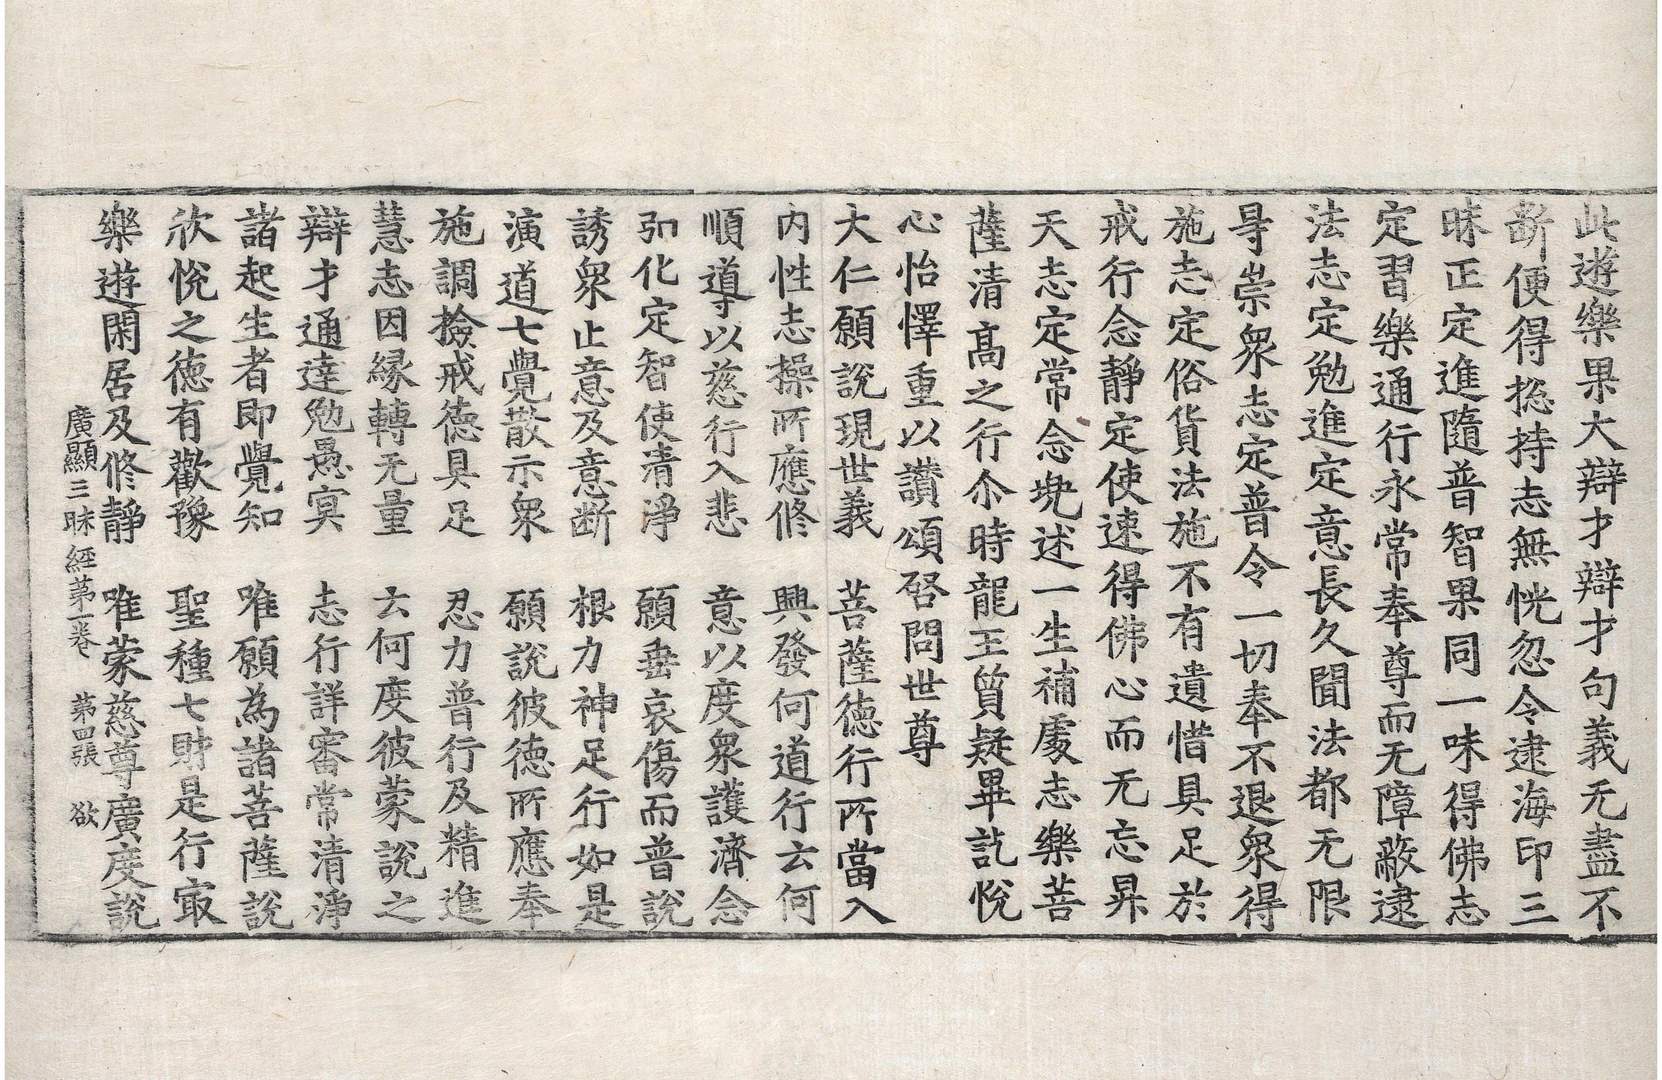 此遊樂果大辯才辯才句義无盡不
斷便得捴持志無恍忽令逮海印三
昧正定進隨普智果同一味得佛志
定習樂通行永常奉尊而无障蔽逮
法志定勉進定意長久聞法都无限
㝵崇衆志定普令一切奉不退衆得
施志定俗貨法施不有遺惜具足於
戒行念靜定使速得佛心而无忘昇
天志定常念兠述一生補處志樂菩
薩清高之行尒時龍王質疑畢訖悅
心怡懌重以讃頌啓問世尊
大仁願說現世義　菩薩德行所當入
內性志操所應修　興發何道行云何
順導以慈行入悲　意以度衆護濟念
弘化定智使清淨　願垂哀傷而普說
誘衆止意及意断　根力神足行如是
演道七覺散示衆　願說彼德所應奉
施調撿戒德具足　忍力普行及精進
慧志因緣轉无量　云何度彼蒙說之
辯才通達勉愚冥　志行詳審常清淨
諸起生者即覺知　唯願為諸菩薩說
欣悅之德有歡豫　聖種七財是行㝡
樂遊閑居及修靜　唯蒙慈尊廣度說
廣顯三昧經第一卷　第四張　欲